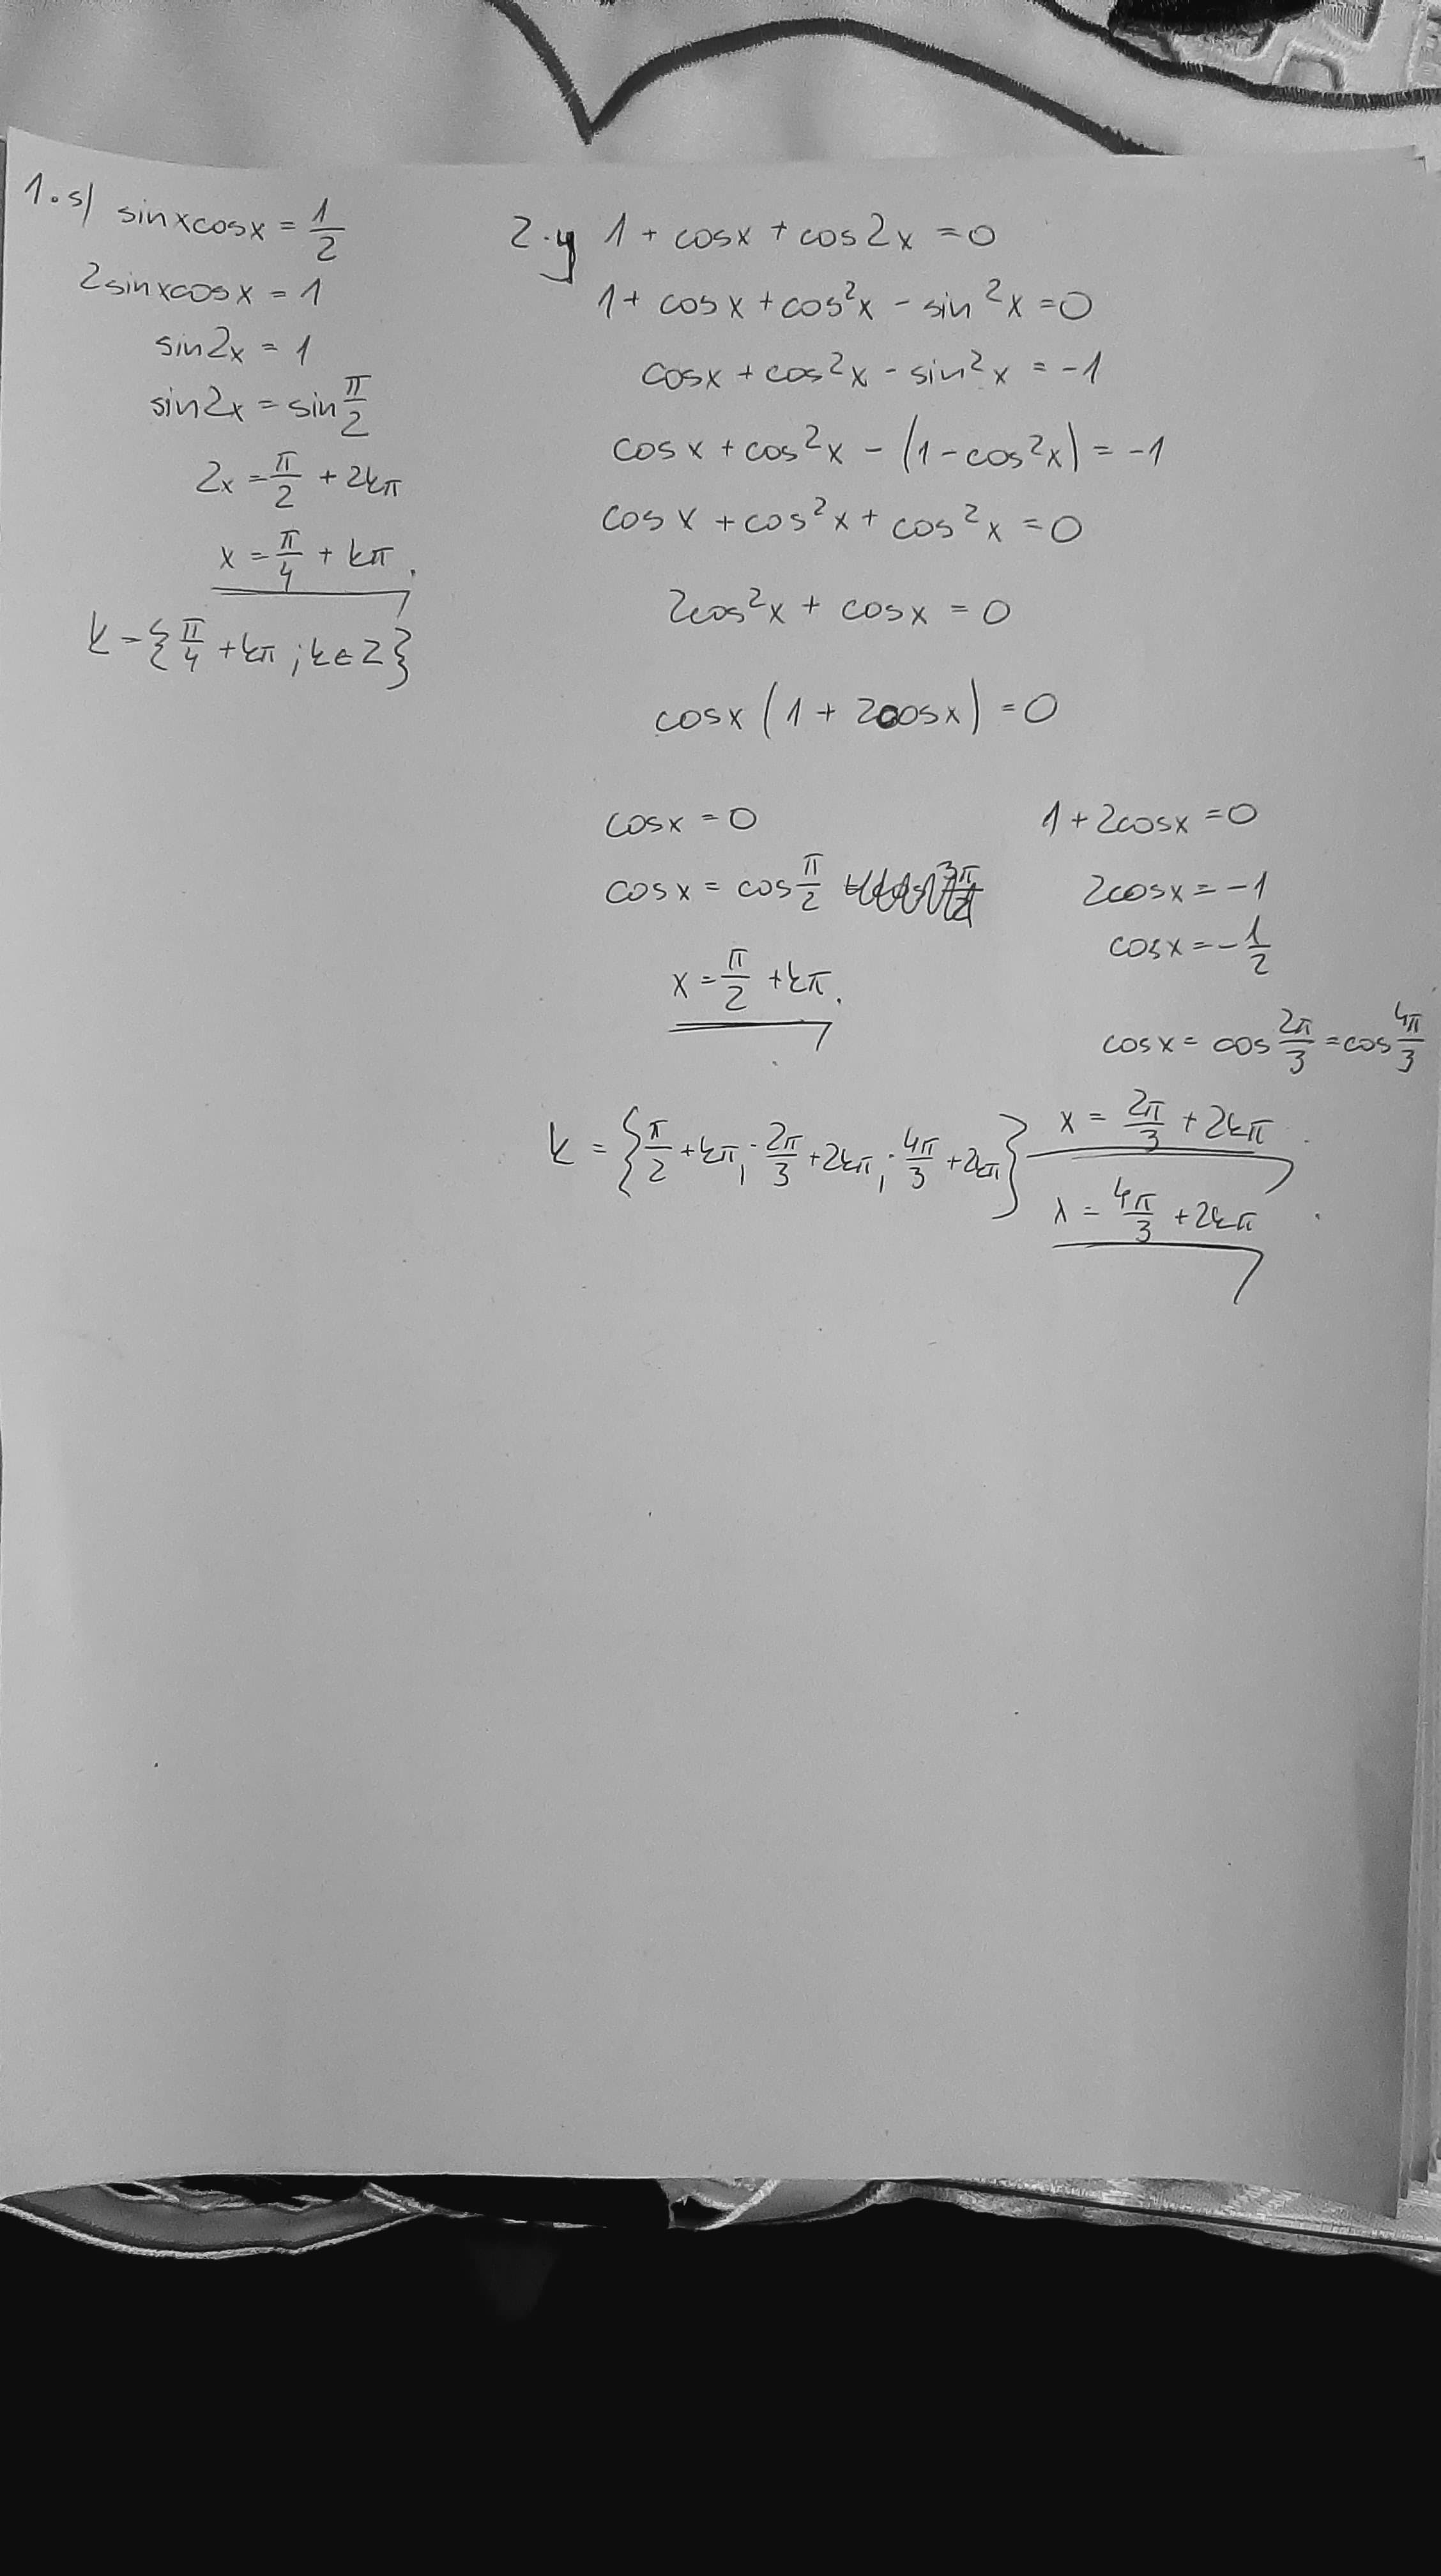 1.s) sinxcosx = 1/2
2sinxcosx = 1
sin2x = 1
sin2x = sin π/2
2x = π/2 + 2kπ
x = π/4 + kπ.
K = {π/4 + kπ ; k ∈ Z}
2.y 1 + cosx + cos2x = 0
1 + cosx + cos²x - sin²x = 0
cosx + cos²x - sin²x = -1
cosx + cos²x - (1 - cos²x) = -1
cosx + cos²x + cos²x = 0
2cos²x + cosx = 0
cosx (1 + 2cosx) = 0
cosx = 0
cosx = cos π/2
x = π/2 + kπ.
1 + 2cosx = 0
2cosx = -1
cosx = - 1/2
cosx = cos 2π/3 = cos 4π/3
x = 2π/3 + 2kπ
x = 4π/3 + 2kπ
K = {π/2 + kπ ; 2π/3 + 2kπ ; 4π/3 + 2kπ}